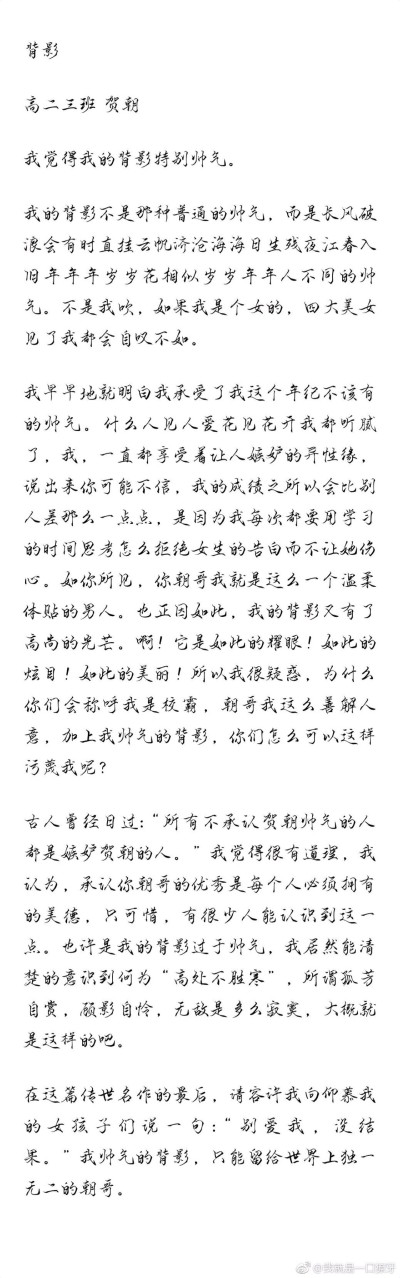 背影
高二三班 贺朝
我觉得我的背影特别帅气。
我的背影不是那种普通的帅气，而是长风破
浪会有时直挂云帆济沧海海日生残夜江春入
旧年年年岁岁花相似岁岁年年人不同的帅
气。不是我吹，如果我是个女的，四大美女
见了我都会自叹不如。
我早早地就明白我承受了我这个年纪不该有
的帅气。什么人见人爱花见花开我都听腻
了，我，一直都享受着让人嫉妒的异性缘，
说出来你可能不信，我的成绩之所以会比别
人差那么一点点，是因为我每次都要用学习
的时间思考怎么拒绝女生的告白而不让她伤
心。如你所见，你朝哥我就是这么一个温柔
体贴的男人。也正因如此，我的背影又有了
高尚的光芒。啊！它是如此的耀眼！如此的
炫目！如此的美丽！所以我很疑惑，为什么
你们会称呼我是校霸，朝哥我这么善解人
意，加上我帅气的背影，你们怎么可以这样
污蔑我呢？
古人曾经曰过：“所有不承认贺朝帅气的人
都是嫉妒贺朝的人。”我觉得很有道理，我
认为，承认你朝哥的优秀是每个人必须拥有
的美德，只可惜，有很少人能认识到这一
点。也许是我的背影过于帅气，我居然能清
楚的意识到何为“高处不胜寒”，所谓孤芳
自赏，顾影自怜，无敌是多么寂寞，大概就
是这样的吧。
在这篇传世名作的最后，请容许我向仰慕我
的女孩子们说一句：“别爱我，没结
果。”我帅气的背影，只能留给世界上独一
无二的朝哥。